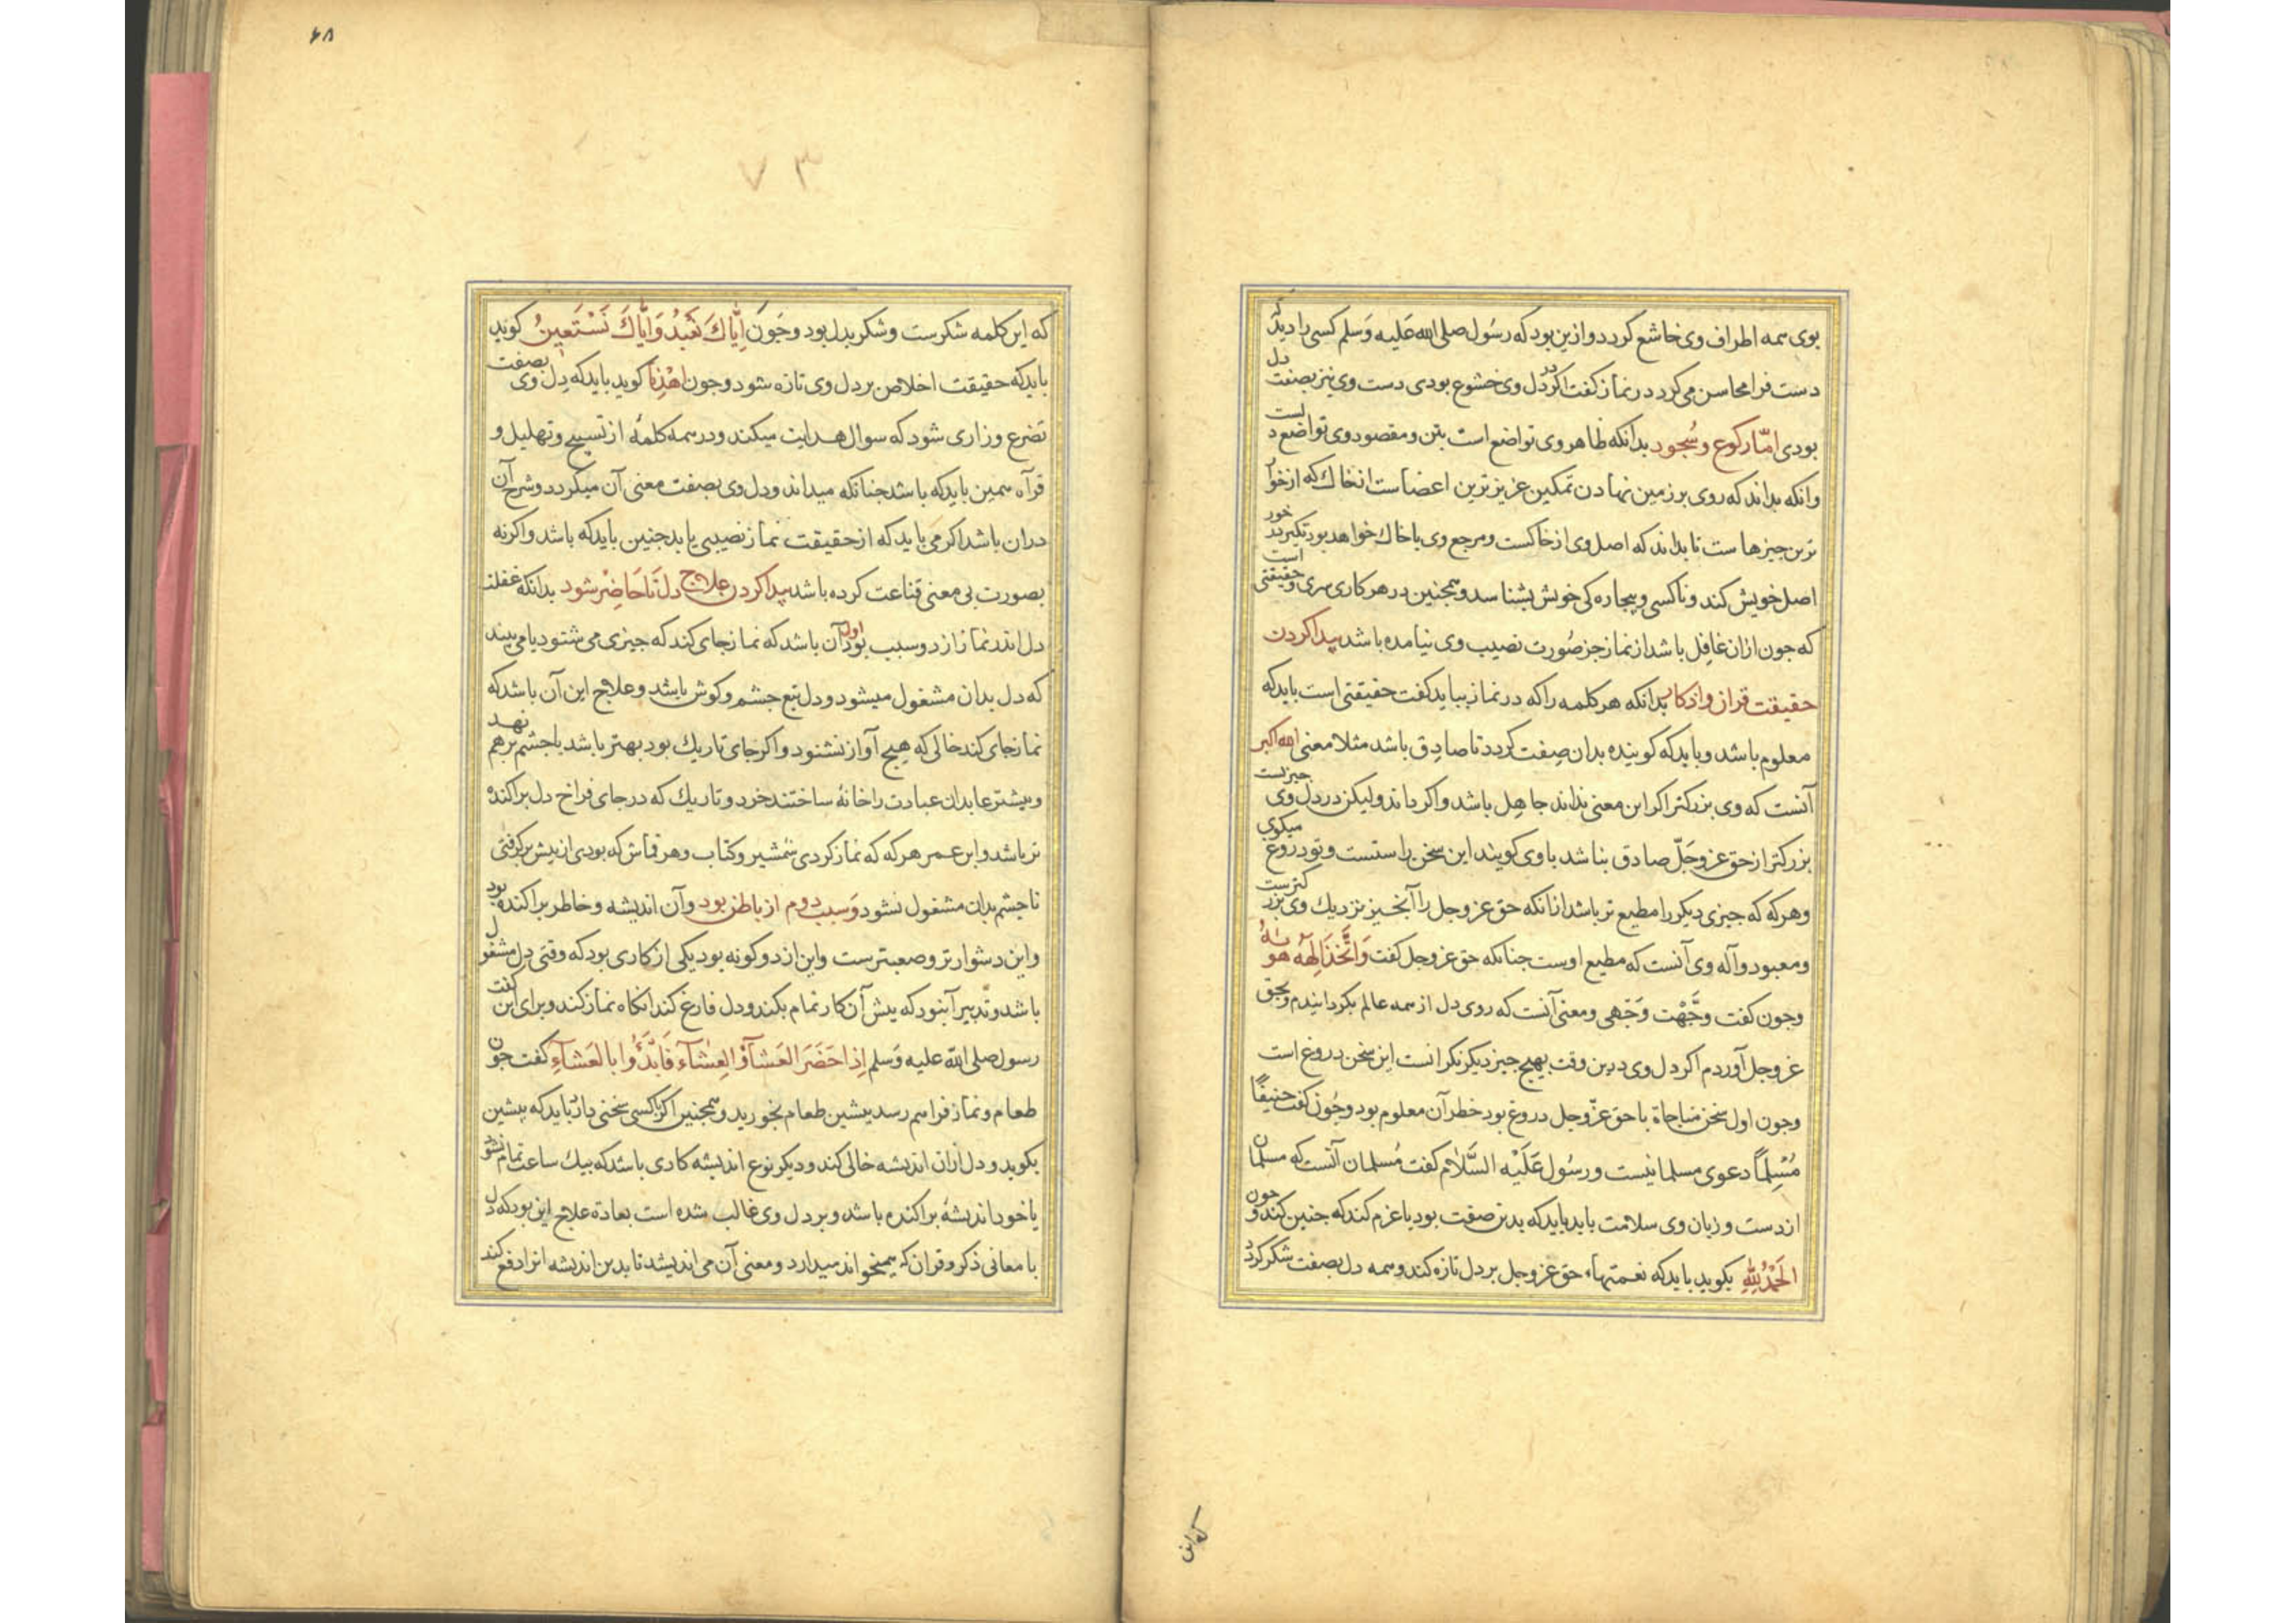 بوی همه اطراف وی خاشع گردد و ازین بود که رسول صلی الله علیه وسلم کسی را دید که
دست فرا محاسن می کرد در نماز گفت اگر در دل وی خشوع بودی دست وی نیز بصفت دل
بودی امّا رکوع و سُجود بدانکه ظاهر وی تواضع است بتن و مقصود وی تواضع دلست
وانکه بداند که روی بر زمین نهادن تمکین عزیزترین اعضاست از خاک که از خوار
ترین چیزهاست تا بداند که اصل وی از خاکست و مرجع وی با خاک خواهد بود تکبر در خور
اصل خویش کند و ناکسی و بیچاره کی خویش بشناسد و همچنین در هر کاری سری و حقیقتی است
که چون ازان غافل باشد از نماز جز صُورت نصیب وی نیامده باشد پیدا کردن
حقیقت قران و اذکار بدانکه هر کلمه را که در نماز بباید گفت حقیقتی است باید که
معلوم باشد و باید که کوینده بدان صفت کردد تا صادق باشد مثلا معنی الله اکبر
آنست که وی بزرکتر اکر این معنی نداند جاهل باشد و اکر داند ولیکن در دل وی چیزیست
بزرکتر از حق عزوجلّ صادق نباشد با وی کویند این سخن راستست و تو دروغ میکوی
وهرکه که چیزی دیکر را مطیع تر باشد ازانکه حق عزوجل را آنچیز نزدیک وی بزرکترست
ومعبود و آله وی آنست که مطیع اوست چنانکه حق عزوجل کفت وَاتَّخَذَ اِلٰهَهُ هَوٰیهُ
وچون کفت وَجَّهْت وَجْهی ومعنی آنست که روی دل از همه عالم بکردانیدم و بحق
عزوجل آوردم اکر دل وی درین وقت بهیچ چیز دیکر نکرانست این سخن دروغ است
وچون اول سخن مناجاة با حق عزّوجل دروغ بود خطر آن معلوم بود وچُون کفت حَنیفًا
مُسْلِمًا دعوی مسلمانیست ورسُول عَلَیْه السَّلَام کفت مُسلمان آنست که مسلمان
از دست وزبان وی سلامت یابد باید که بدین صفت بود یا عزم کند که چنین کند و چون
اَلْحَمْدُ لِلّٰهِ بکوید باید که نعمتهاء حق عزوجل بر دل تازه کند وهمه دل بصفت شکر کردد
که این
۶۸
۷۳
که این کلمه شکرست و شکر بدل بود وچَون اِیَّاکَ نَعْبُدُ وَاِیَّاکَ نَسْتَعِینُ کوید
باید که حقیقت اخلاص بر دل وی تازه شود وچون اِهْدِنَا کوید باید که دل وی بصفت
تضرع وزاری شود که سوال هدایت میکند ودر همه کلمهٔ از تسبیح وتهلیل و
قرآه همین باید که باشد چنانکه میداند ودل وی بصفت معنی آن میکردد وشرح آن
دران باشد اکر می باید که از حقیقت نماز نصیبی یابد چنین باید که باشد واکرنه
بصورت بی معنی قناعت کرده باشد پیدا کردن علاج دل تا حَاضِرْ شود بدانکه غفلت
دل اندر نماز از دو سبب بود اول آن باشد که نماز جای کند که چیزی می شنود یا می بیند
که دل بدان مشغول میشود ودل تبع چشم وکوش باشد وعلاج این آن باشد که
نماز جای کند خالی که هیچ آواز نشنود واکر جای تاریک بود بهتر باشد یا چشم برهم نهد
وبیشتر عابدان عبادت را خانهٔ ساختند خرد وتاریک که در جای فراخ دل پراکنده
تر باشد وابن عمر هرکه که نماز کردی شمشیر وکتاب وهر قماش که بودی از پیش برکرفتی
تا چشم بدان مشغول نشود وسبب دوم از باطن بود وآن اندیشه وخاطر پراکنده بود
واین دشوارتر وصعبترست واین از دو کونه بود یکی از کاری بود که وقتی دل مشغول
باشد وتدبیر آنبود که پیش آن کار تمام بکند ودل فارغ کند انکاه نماز کند وبرای این کفت
رسول صلی الله علیه وسلم اِذَا حَضَرَ العَشَآءُ وَالعِشَآءُ فَابْدَؤُا بِالعَشَآءِ کفت چون
طعام ونماز فراهم رسد پیشین طعام بخورید وهمچنین اکر با کسی سخنی دارد باید که پیشین
بکوید ودل ازان اندیشه خالی کند ودیکر نوع اندیشه کاری باشد که بیک ساعت تمام نشود
یا خود اندیشهٔ پراکنده باشد وبر دل وی غالب شده است بعادة علاج این بود که دل
با معانی ذکر وقران که همیخواند میدارد ومعنی آن می اندیشد تا بدین اندیشه انرا دفع کند